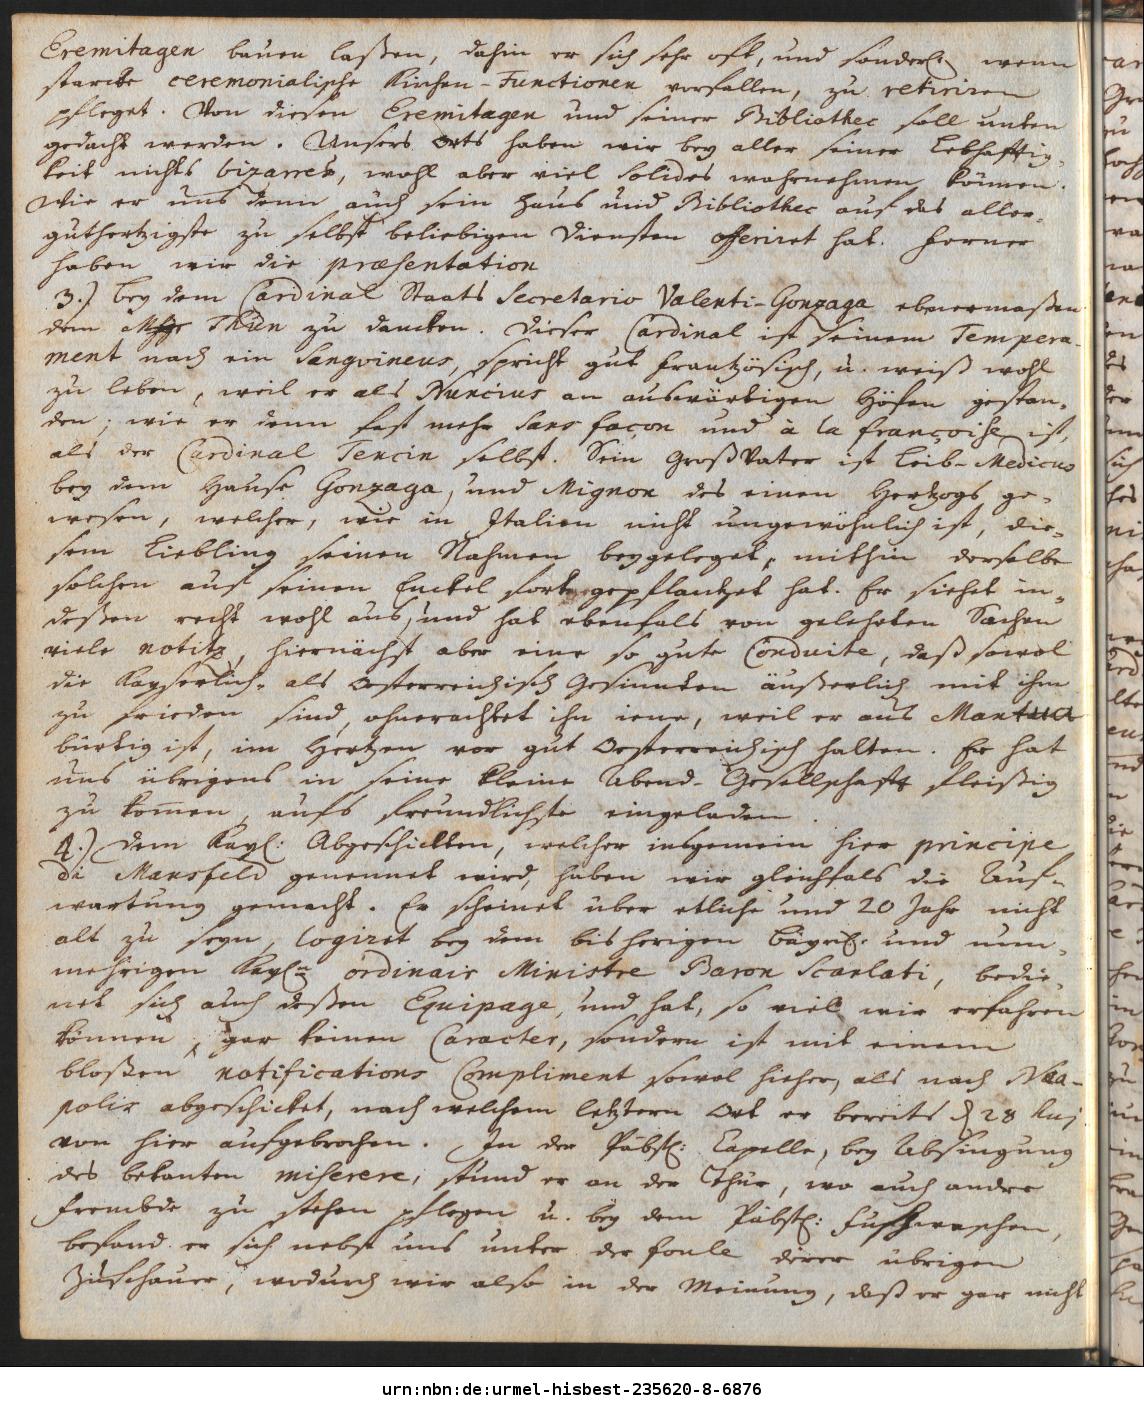 Eremitagen bauen laßen, dahin er sich sehr oft, und sonderl. wenn
starcke ceremonialische Kirchen-Functionen vorfallen, zu retiriren
pfleget. Von diesen Eremitagen und seiner Bibliothec soll unten
gedacht werden. Unsers Orts haben wir bey aller seiner Lebhafftig-
keit nichts bizarres, wohl aber viel solides wahrnehmen können.
Wie er uns denn auch sein Haus und Bibliothec auf das aller-
guthertzigste zu selbst beliebigen Diensten offeriret hat. Ferner
haben wir die præsentation
3.) bey dem Cardinal Staats Secretario Valenti-Gonzaga ebenermaßen
dem Msgr Thun zu dancken. Dieser Cardinal ist seinem Tempera-
ment nach ein Sangvineus, spricht gut frantzösisch, u. weiß wohl
zu leben, weil er als Nuncius an auswärtigen Höfen gestan-
den; wie er denn fast mehr sans façon und à la françoise ist,
als der Cardinal Tencin selbst. Sein GroßVater ist Leib-Medicus
bey dem Hause Gonzaga, und Mignon des einen Hertzogs ge-
wesen, welcher, wie in Italien nicht ungewöhnlich ist, die-
sem Liebling seinen Nahmen beygeleget, mithin derselbe
solchen auf seinen Enckel fortgepflantzet hat. Er siehet in-
deßen recht wohl aus, und hat ebenfals von gelehrten Sachen
viele notitz, hiernächst aber eine so gute Conduite, daß sowol
die Kayserlich- als Oesterreichisch Gesinnten äußerlich mit ihm
zu frieden sind, ohnerachtet ihn iene, weil er aus Mantua
bürtig ist, im Hertzen vor gut Oesterreichisch halten. Er hat
uns übrigens in seine kleine Abend-Gesellschafft fleißig
zu kommen, aufs freundlichste eingeladen.
4.) Dem Kayl: Abgeschickten, welcher insgemein hier principe
di Mansfeld genennet wird, haben wir gleichfals die Auf-
wartung gemacht. Er scheinet über etliche und 20 Jahr nicht
alt zu seyn, logiret bey dem bisherigen Bäyrl. und nun-
mehrigen Kayln ordinair Ministre Baron Scarlati, bedie-
net sich auch deßen Equipage, und hat, so viel wir erfahren
können, gar keinen Caracter, sondern ist mit einem
bloßen notifications Compliment sowol hieher, als nach Nea-
polis abgeschicket, nach welchem letztern Ort er bereits d 28 huj
von hier aufgebrochen. In der Päbstl: Capelle, bey Absingung
des bekanten miserere, stund er an der Thür, wo auch andre
Frembde zu stehen pflegen u. bey dem Päbstl: Fußwaschen,
befand er sich nebst uns unter der foule derer übrigen
Zuschauer, wodurch wir also in der Meinung, daß er gar nicht
urn:nbn:de:urmel-hisbest-235620-8-6876